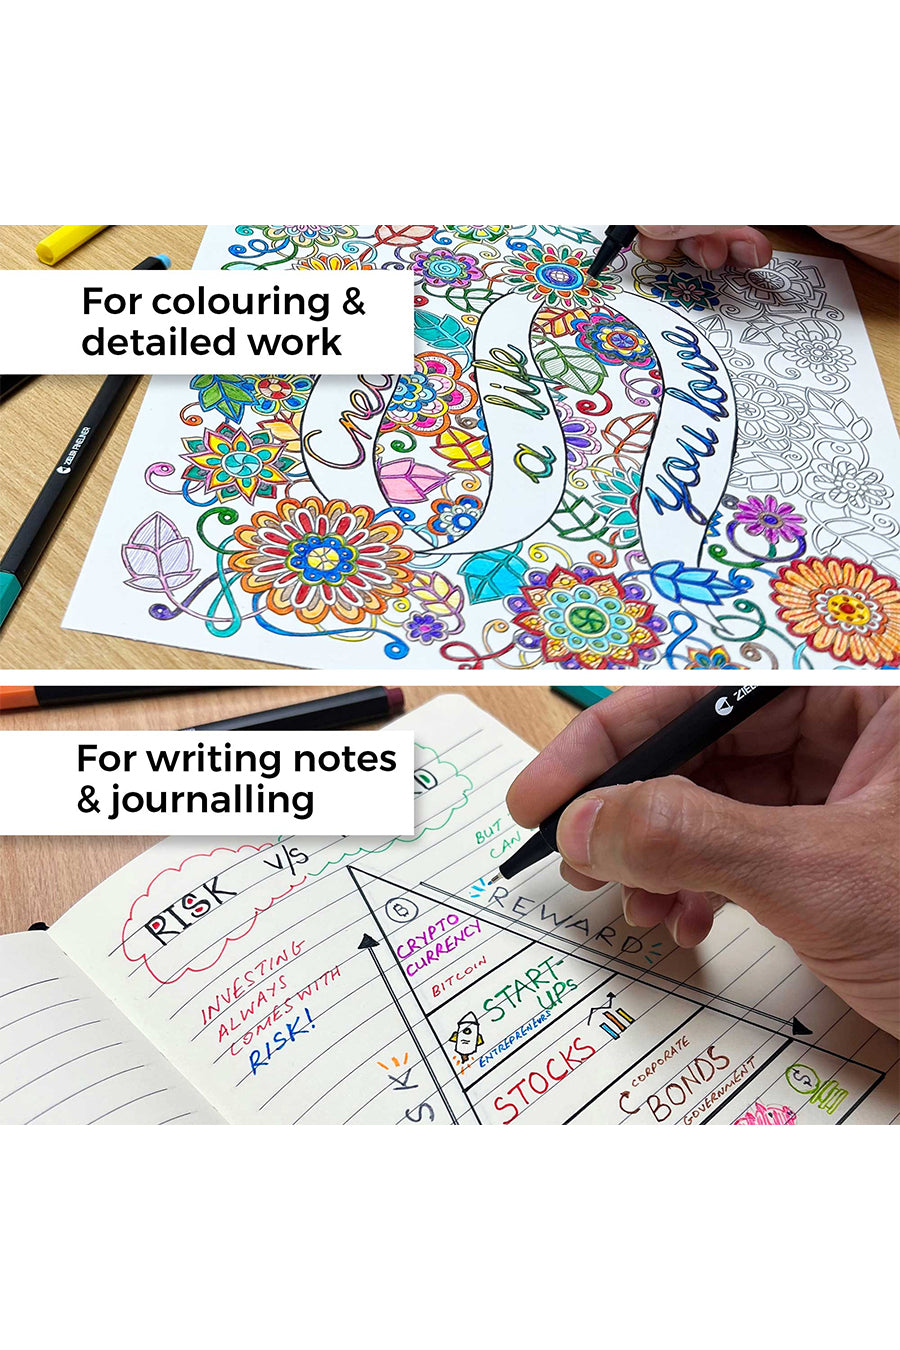 For colouring &
detailed work
a life
you love
For writing notes
& journalling
RISK V/S
BUT
CAN
REWARD
INVESTING
ALWAYS
COMES WITH
RISK!
CRYPTO
CURRENCY
BITCOIN
START-
UPS
ENTREPRENEURS
STOCKS
CORPORATE
BONDS
GOVERNMENT